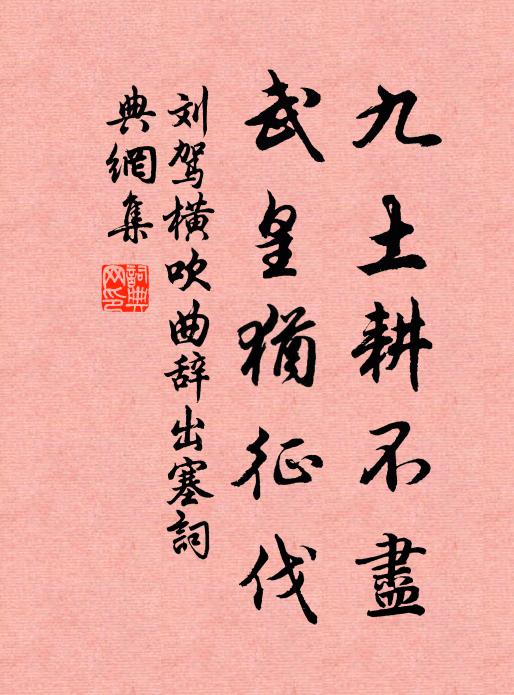 九土耕不盡
武皇猶征伐
刘驾横吹曲辞出塞詞
典網集
詞典網印